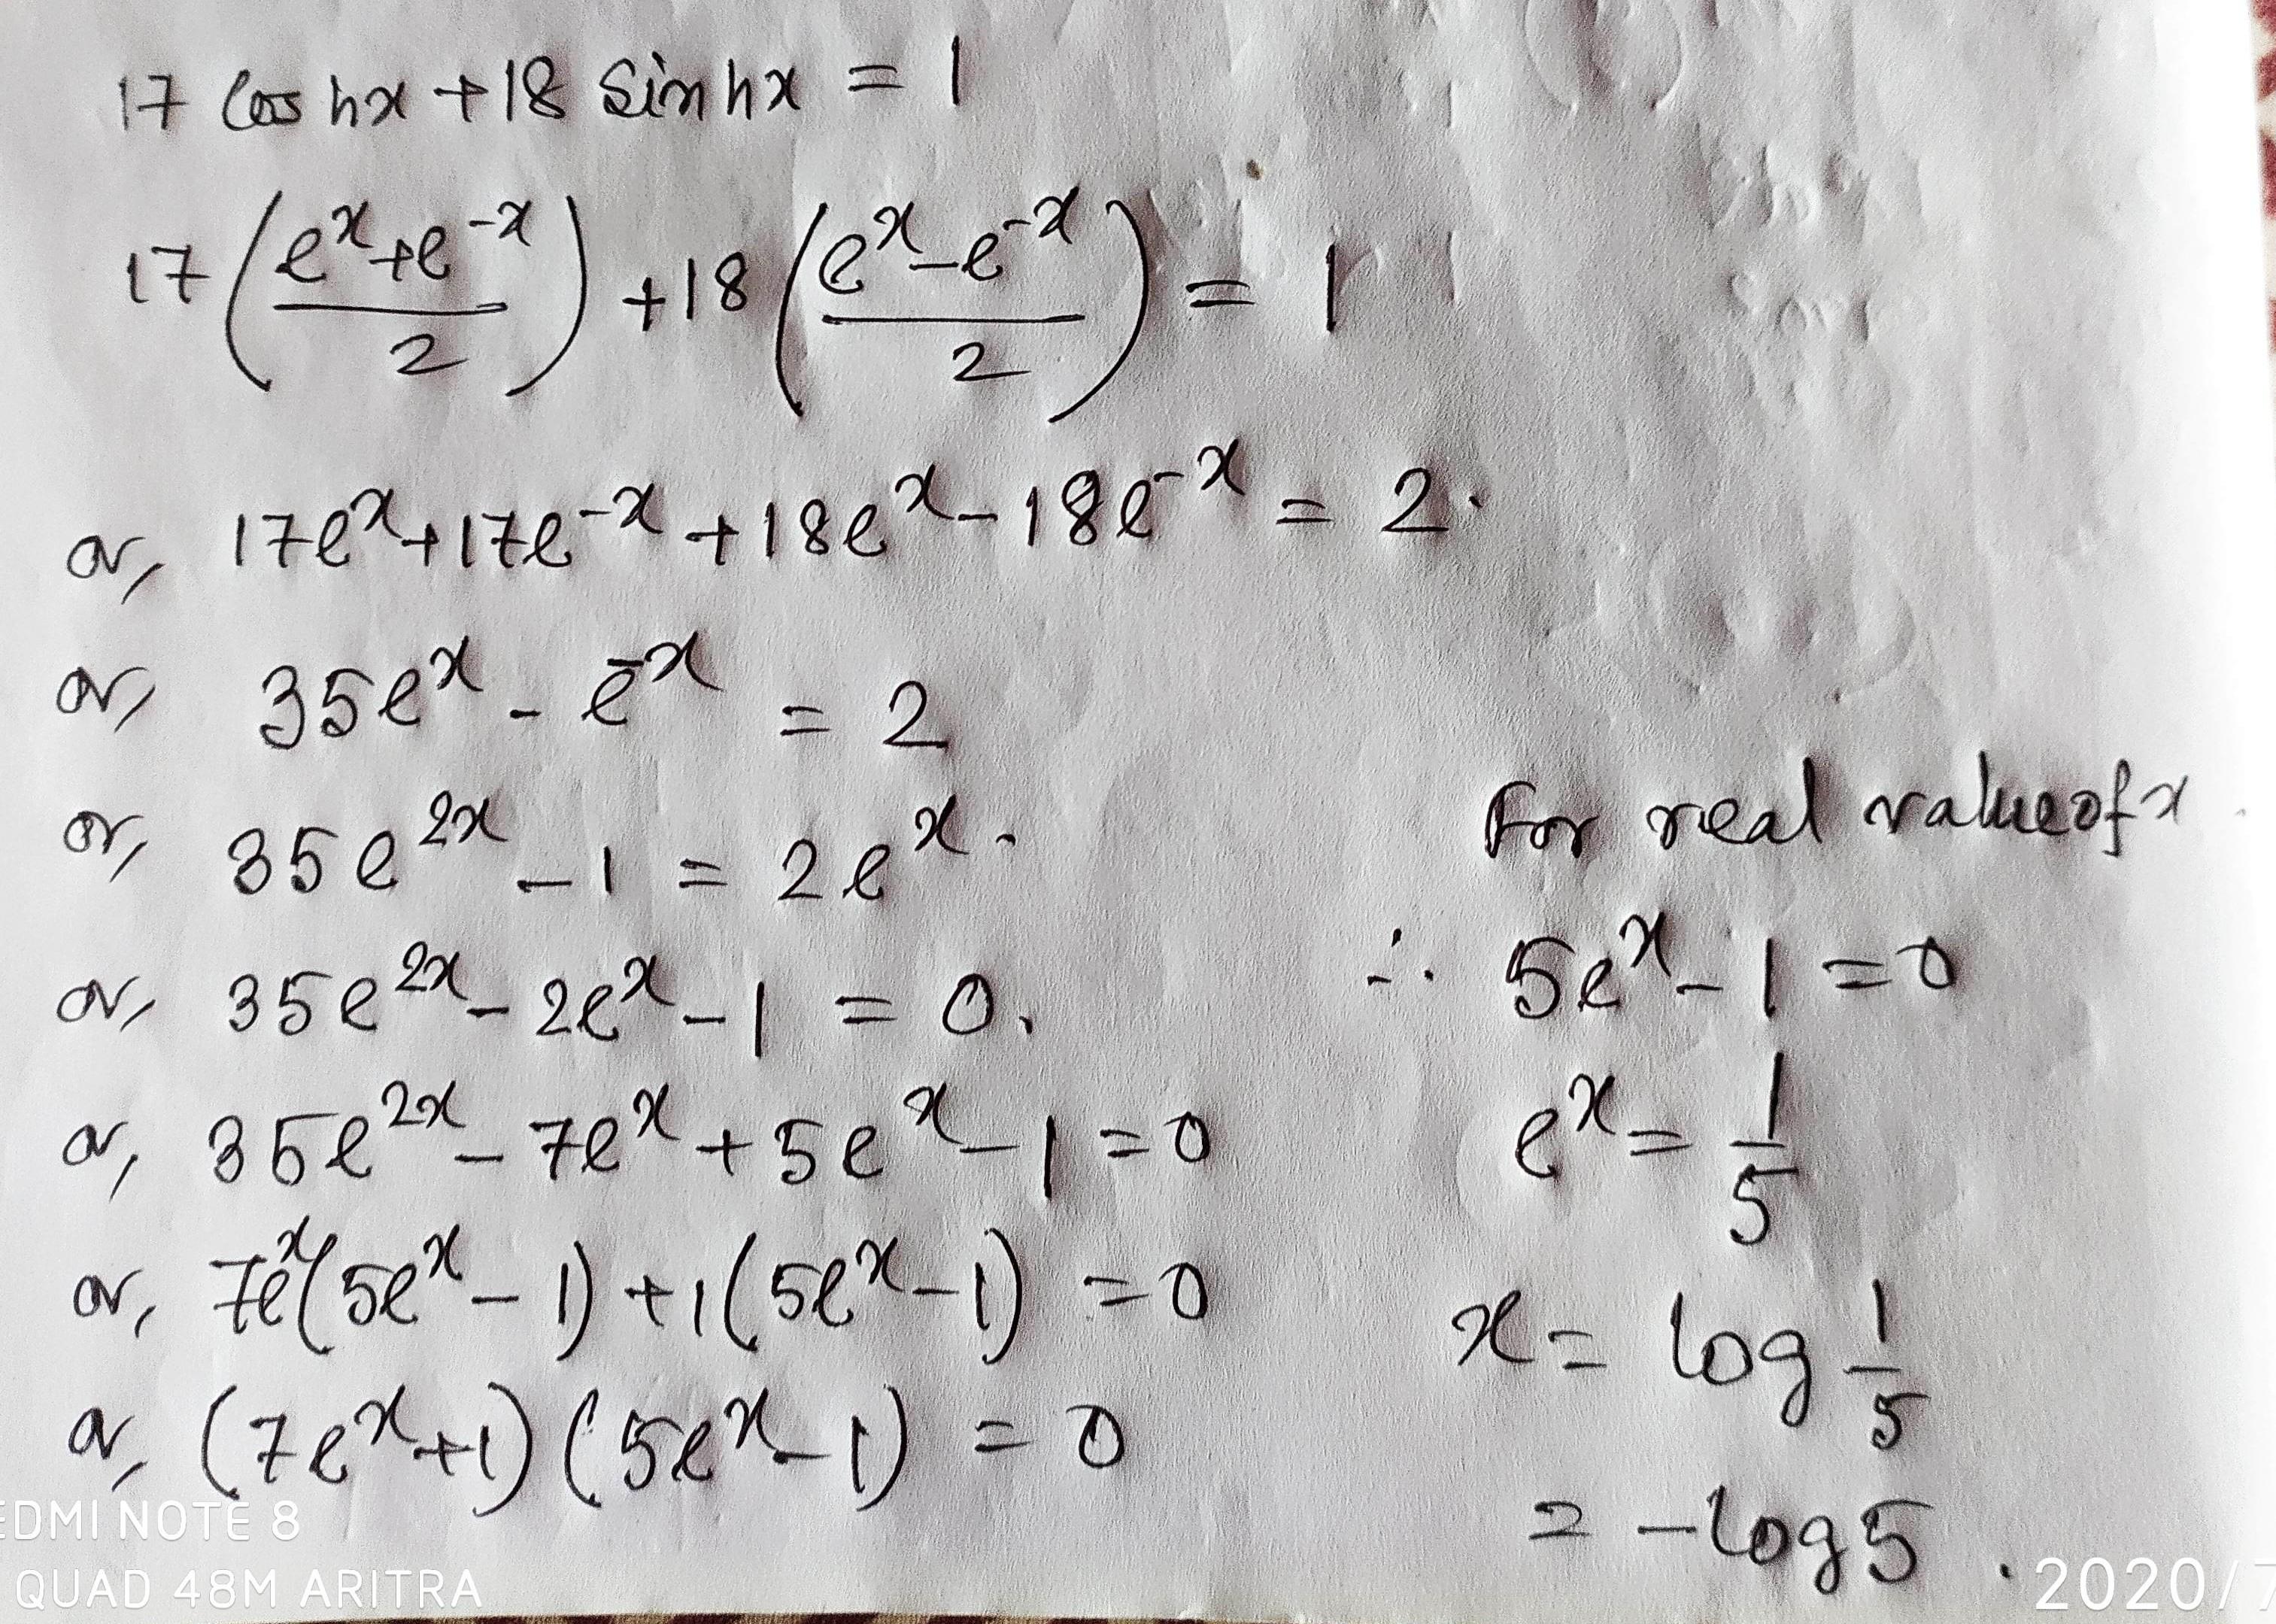 17 Cos hx + 18 Sin hx = 1
17 ( (e^x + e^-x) / 2 ) + 18 ( (e^x - e^-x) / 2 ) = 1
or, 17e^x + 17e^-x + 18e^x - 18e^-x = 2.
or, 35e^x - e^-x = 2
or, 35e^2x - 1 = 2e^x.
or, 35e^2x - 2e^x - 1 = 0.
or, 35e^2x - 7e^x + 5e^x - 1 = 0
or, 7e^x(5e^x - 1) + 1(5e^x - 1) = 0
or, (7e^x + 1)(5e^x - 1) = 0
For real value of x.
∴ 5e^x - 1 = 0
e^x = 1/5
x = log 1/5
= -log 5.
EDMI NOTE 8
QUAD 48M ARITRA
2020/7